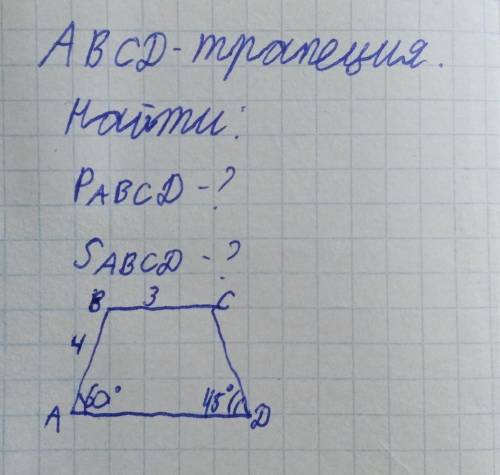 ABCD-трапеция.
Найти:
PABCD-?
SABCD-?
B 3 C
4
A 60° 45° D